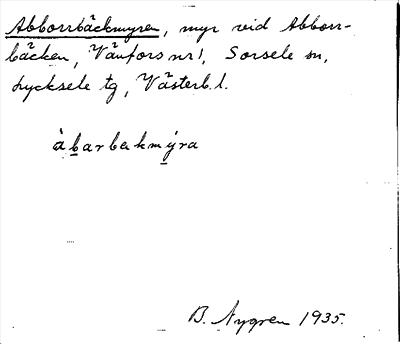 Abborrbäckmyren, myr vid Abborr-
bäcken, Vänfors nr 1, Sorsele sn,
Lycksele tg, Västerb. l.
àbarbekmýra
B. Nygren 1935.